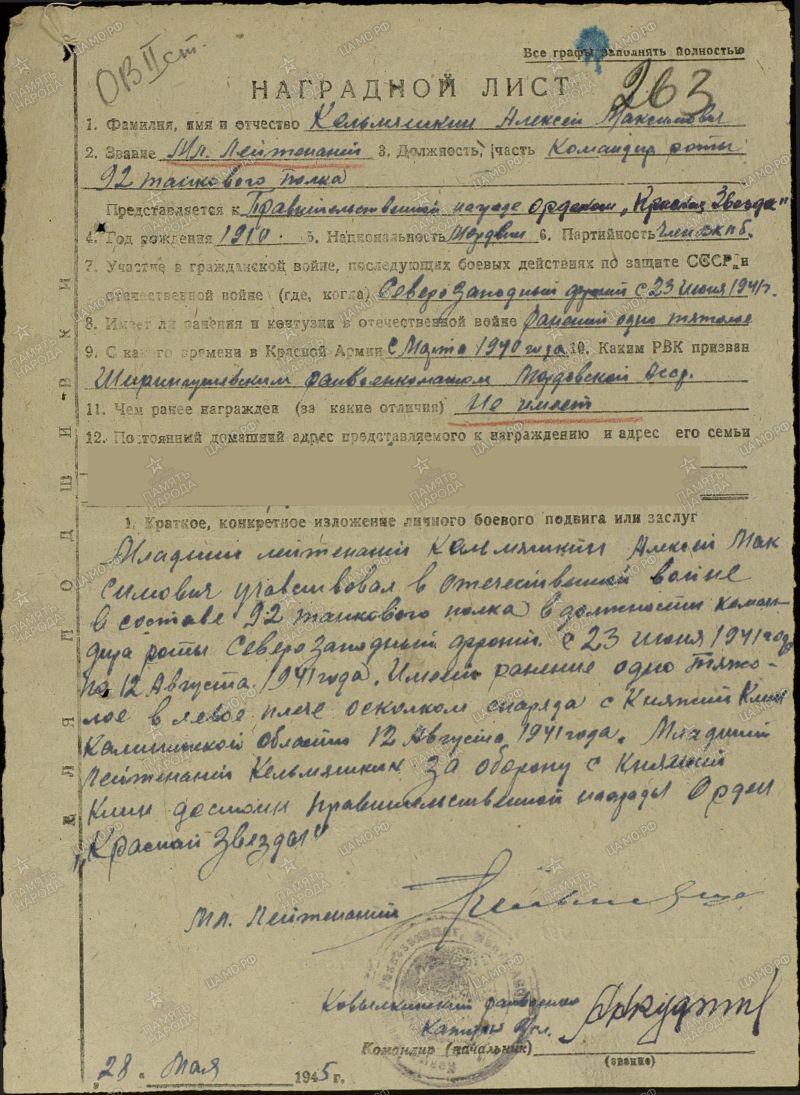 ОВ II ст.
Все графы заполнять полностью
НАГРАДНОЙ ЛИСТ
263
1. Фамилия, имя и отчество Кельмяшкин Алексей Максимович
2. Звание Мл. Лейтенант 3. Должность, часть Командир роты
92 танкового полка
Представляется к Правительственной награде орденом „Красная Звезда"
4. Год рождения 1910. 5. Национальность Мордвин 6. Партийность Член ВКПб.
7. Участие в гражданской войне, последующих боевых действиях по защите СССР и
отечественной войне (где, когда) Северо Западный фронт с 23 июня 1941 г.
8. Имеет ли ранения и контузии в отечественной войне Ранений одно тяжолое
9. С какого времени в Красной Армии С Марта 1940 года 10. Каким РВК призван
Ширингушевским райвоенкоматом Мордовской Асср.
11. Чем ранее награжден (за какие отличия) Не имеет
12. Постоянный домашний адрес представляемого к награждению и адрес его семьи
1. Краткое, конкретное изложение личного боевого подвига или заслуг
Младший лейтенант Кельмяшкин Алексей Мак
симович учавствовал в отечественной войне
в составе 92 танкового полка в должности коман-
дира роты Северо Западный фронт. с 23 июня 1941 года
по 12 Августа 1941 года. Имеет ранение одно тяжо-
лое в левое плече осколком снаряда с Княжий Клин
Калининской области 12 Августа 1941 года. Младший
Лейтенант Кельмяшкин за оборону с Княжий
Клин достоин правительственной награды Орден
„Красной Звезды"
Мл. Лейтенант
Ковылкинский райвоенком
Капитан
Командир (начальник)
(звание)
28. Мая 1945 г.
ДЛЯ ПОДШИВКИ
ПАМЯТЬ НАРОДА
ЦАМО.РФ